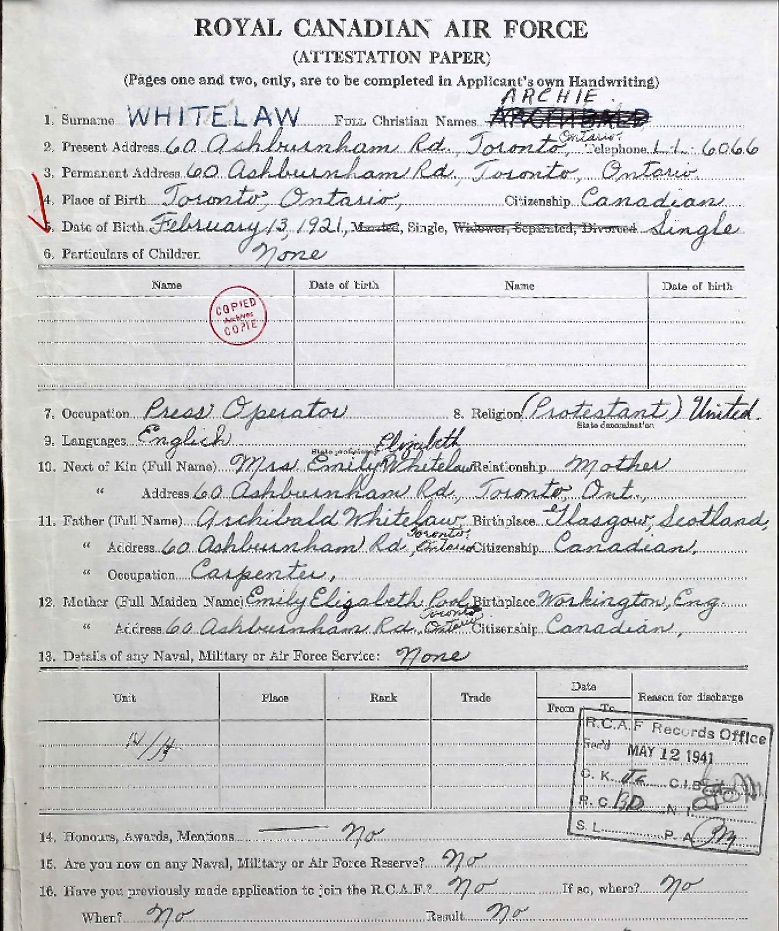 ROYAL CANADIAN AIR FORCE
(ATTESTATION PAPER)
(Pages one and two, only, are to be completed in Applicant's own Handwriting)
ARCHIE
1. Surname WHITELAW Full Christian Names ARCHIBALD
2. Present Address 60 Ashburnham Rd., Toronto, Ontario. Telephone LL. 6066
3. Permanent Address 60 Ashburnham Rd., Toronto, Ontario.
4. Place of Birth Toronto, Ontario, Citizenship Canadian
5. Date of Birth February 13, 1921, Married, Single, Widower, Separated, Divorced Single
6. Particulars of Children None
Name Date of birth Name Date of birth
COPIED
COPIE
7. Occupation Press Operator 8. Religion (Protestant) United.
State denomination
9. Languages English
State proficiency
10. Next of Kin (Full Name) Mrs Emily Elizabeth Whitelaw Relationship Mother
" Address 60 Ashburnham Rd., Toronto, Ont.,
11. Father (Full Name) Archibald Whitelaw, Birthplace Glasgow, Scotland,
" Address 60 Ashburnham Rd., Toronto, Ontario Citizenship Canadian,
" Occupation Carpenter,
12. Mother (Full Maiden Name) Emily Elizabeth Pool, Birthplace Workington, Eng
" Address 60 Ashburnham Rd., Toronto Ontario Citizenship Canadian,
13. Details of any Naval, Military or Air Force Service: None
Unit Place Rank Trade Date Reason for discharge
From To
R.C.A.F Records Office
Rec'd MAY 12 1941
C. K. C.I.B
R. C. BD N. I.
S. L. P. A
14. Honours, Awards, Mentions No
15. Are you now on any Naval, Military or Air Force Reserve? No
16. Have you previously made application to join the R.C.A.F.? No If so, where? No
When? No Result No